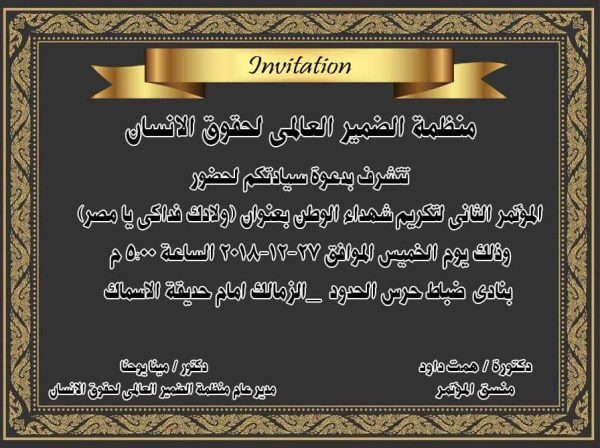 Invitation
منظمة الضمير العالمى لحقوق الانسان
تتشرف بدعوة سيادتكم لحضور
المؤتمر الثانى لتكريم شهداء الوطن بعنوان (ولادك فداكى يا مصر)
وذلك يوم الخميس الموافق ٢٧-١٢-٢٠١٨ الساعة ٥:٠٠ م
بنادى ضباط حرس الحدود _الزمالك امام حديقة الاسماك
دكتورة / همت داود
منسق المؤتمر
دكتور / مينا يوحنا
مدير عام منظمة الضمير العالمى لحقوق الانسان